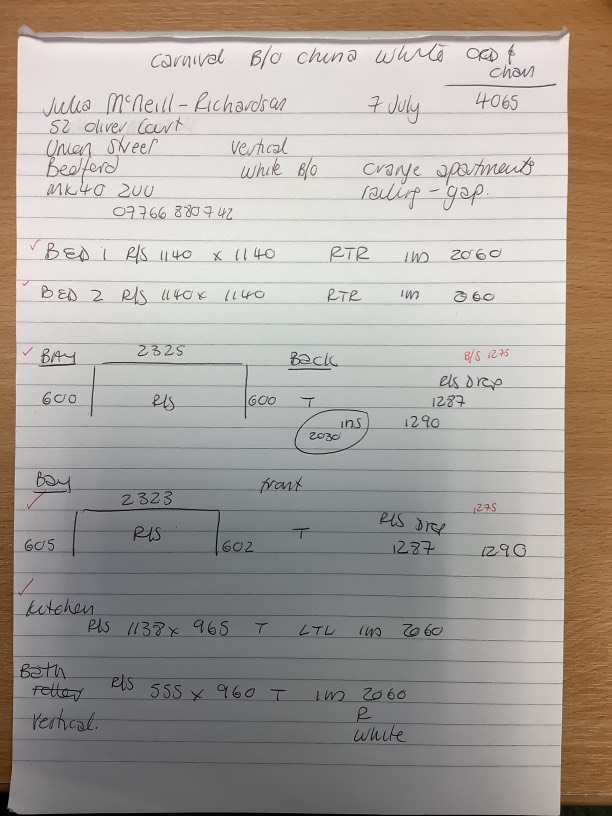 Carnival B/O china white cord &
chain
Julia McNeill-Richardson 7 July 4065
52 Oliver Court
Union Street Vertical
Bedford White B/O Orange apartments
MK40 2UU railing - gap.
07766 880742
BED 1 R/S 1140 x 1140 RTR INS 2060
BED 2 R/S 1140 x 1140 RTR INS 2060
BAY 2325 Back B/S 1275
R/S Drop
600 R/S 600 T 1287
INS 1290
2030
Bay front
2323 1275
R/S Drop
605 R/S 602 T 1287 1290
Kitchen
R/S 1138 x 965 T LTL INS 2060
Bath
roller R/S 555 x 960 T INS 2060
Vertical. R
White